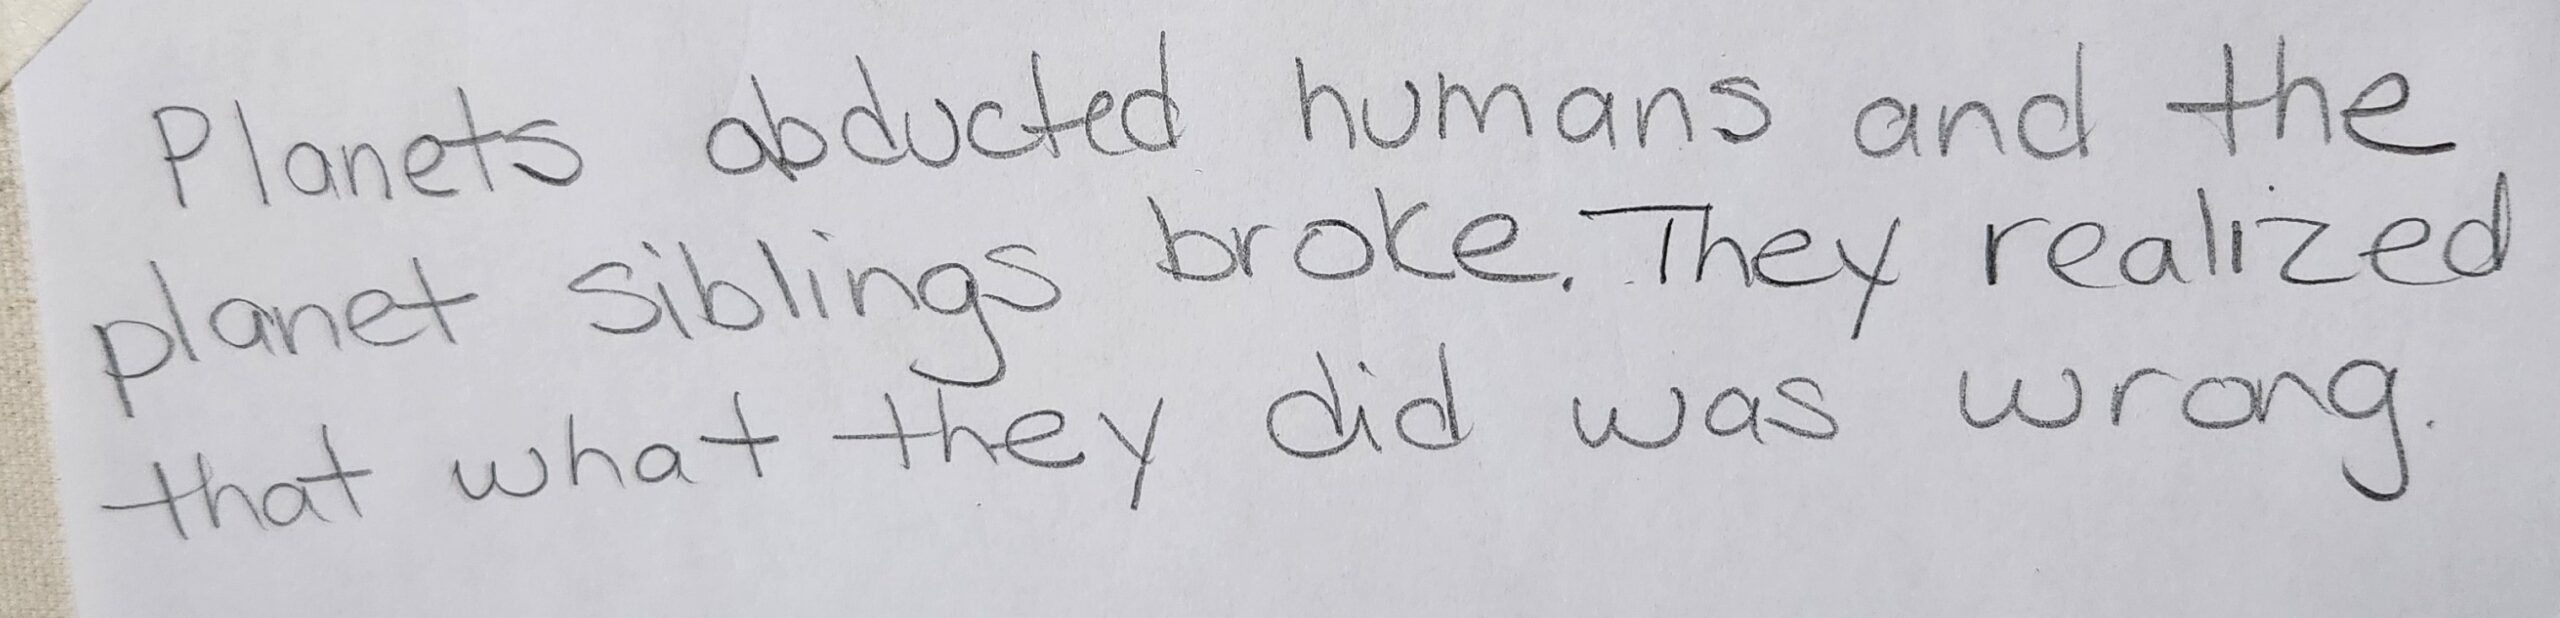 Planets abducted humans and the
planet siblings broke. They realized
that what they did was wrong.